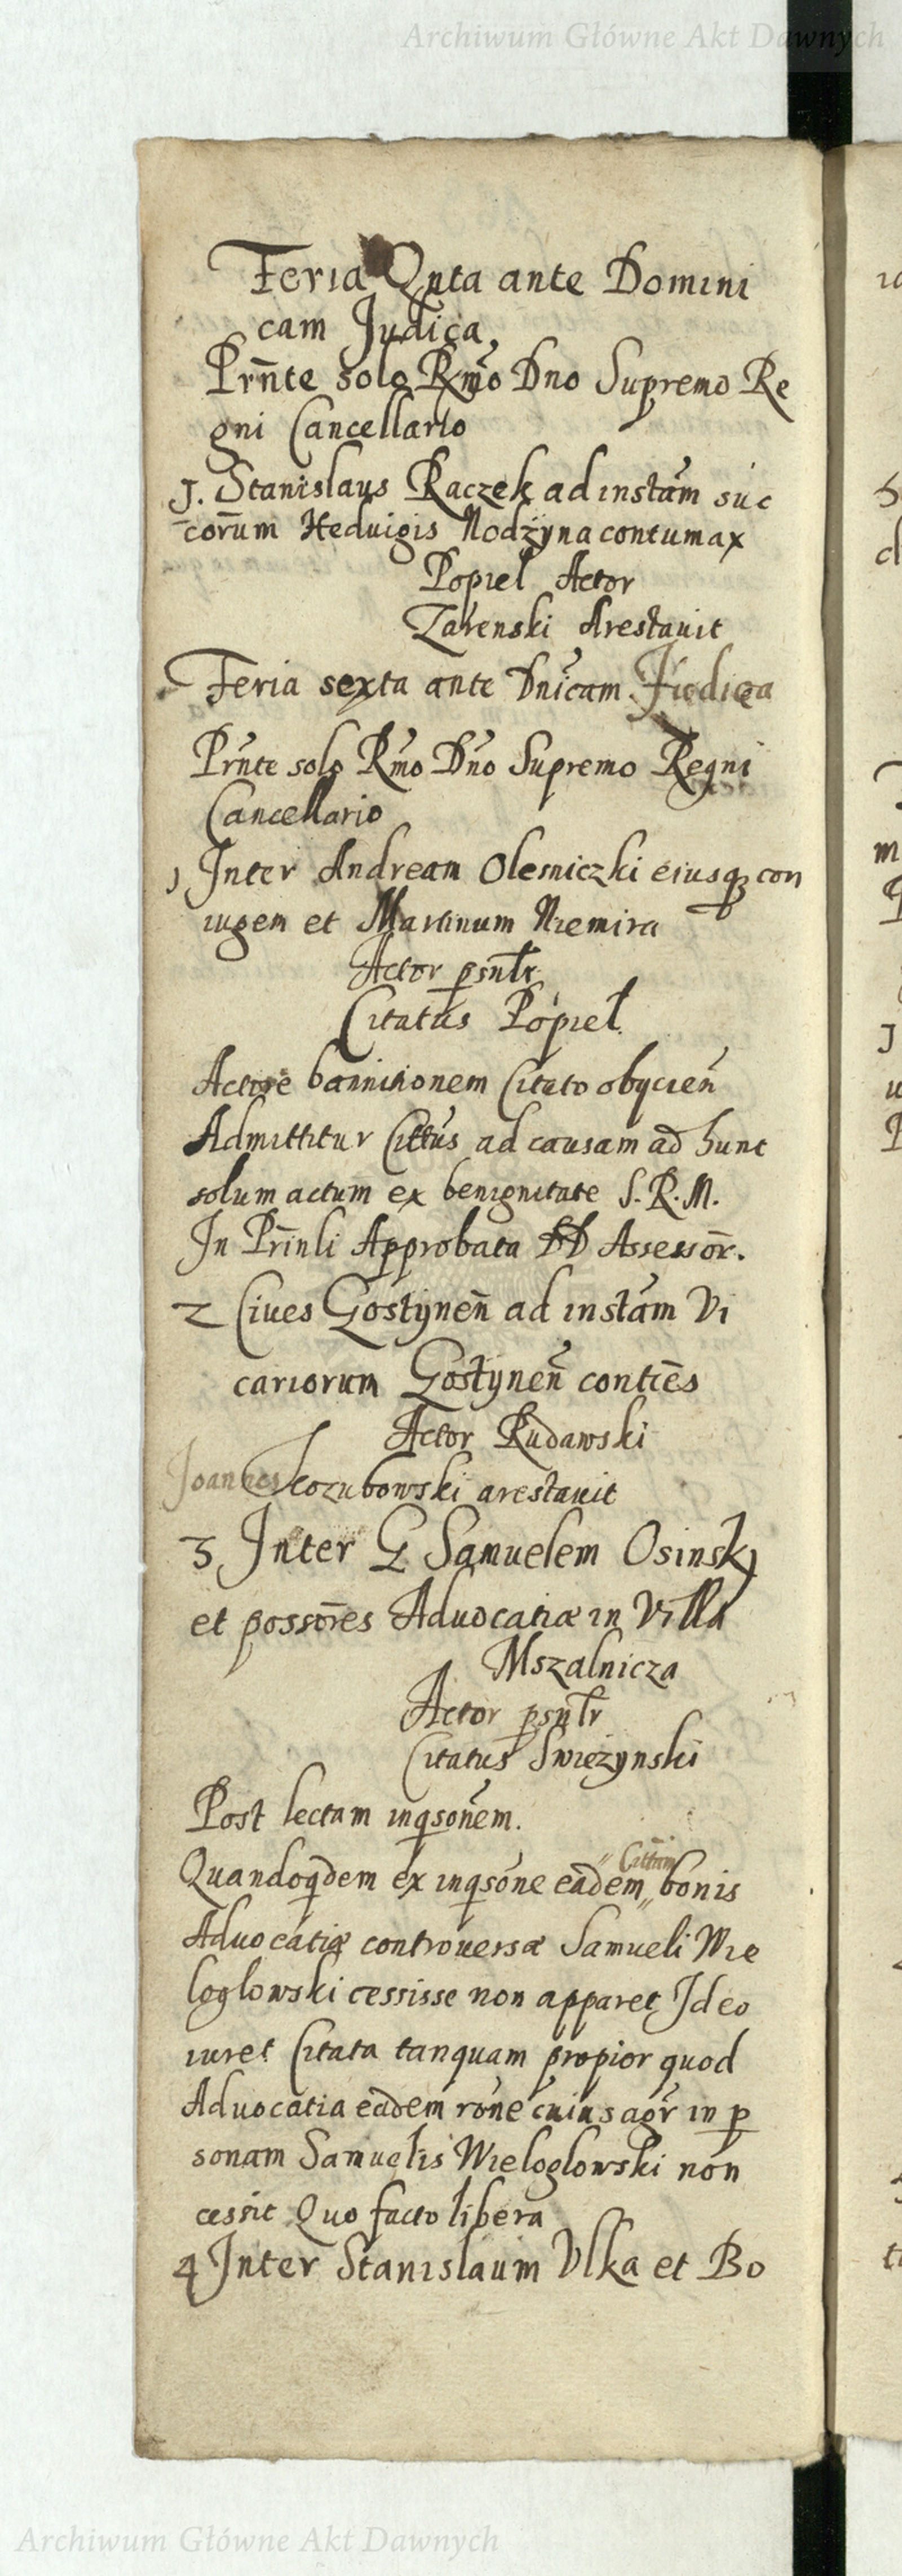 Archiwum Główne Akt Dawnych
Feria Qnta ante Domini
cam Judica,
Prñte solo Rmo Dno Supremo Re
gni Cancellario
J. Stanislaus Raczek ad instam suc
corum Heduigis Nodżyna contumax
Popiel Actor
Zarenski Arestauit
Feria sexta ante Dnicam Judica
Prnte solo Rmo Dno Supremo Regni
Cancellario
1 Inter Andream Olesniczki eiusq con
iugem et Martinum Niemira
Actor psnlr
Citatus Popiel
Actore bannitionem Citato obycien
Admittitur Cittus ad causam ad hunc
solum actum ex benignitate S. R. M.
In Prinli Approbata DD Assessor.
2 Ciues Gostynen ad instam Vi
cariorum Gostynen conties
Actor Rudawski
Joannes Kozubowski arestauit
3 Inter G Samuelem Osinsky
et possores Aduocatiæ in Villa
Mszalnicza
Actor psnlr
Citatus Swiezynski
Post lectam inqsonem.
Cittam
Quandoqdem ex inqsone eadem bonis
Aduocatiæ controuersæ Samueli Wie
loglowski cessisse non apparet Ideo
iuret Citata tanquam propior quod
Aduocatia eadem rone cuius agr in p
sonam Samuelis Wieloglowski non
cessit Quo facto libera
4 Inter Stanislaum Vlka et Bo
Archiwum Główne Akt Dawnych